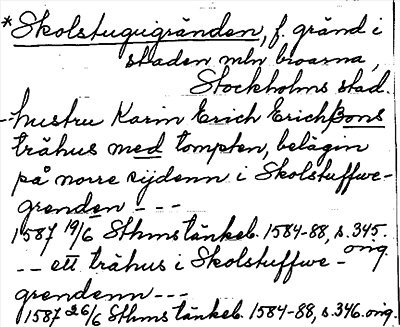 *Skolstugugränden, f. gränd i
staden mln broarna,
Stockholms stad.
- hustru Karin Erich Erichßons
trähus med tompten, belägin
på norre sijdenn i Skolstuffwe-
grenden - - -
1587 19/6 Sthms tänkeb. 1584-88, s. 345.
orig.
-- ett trähus i Skolstuffwe-
grendenn - - -
1587 26/6 Sthms tänkeb. 1584-88, s. 346. orig.